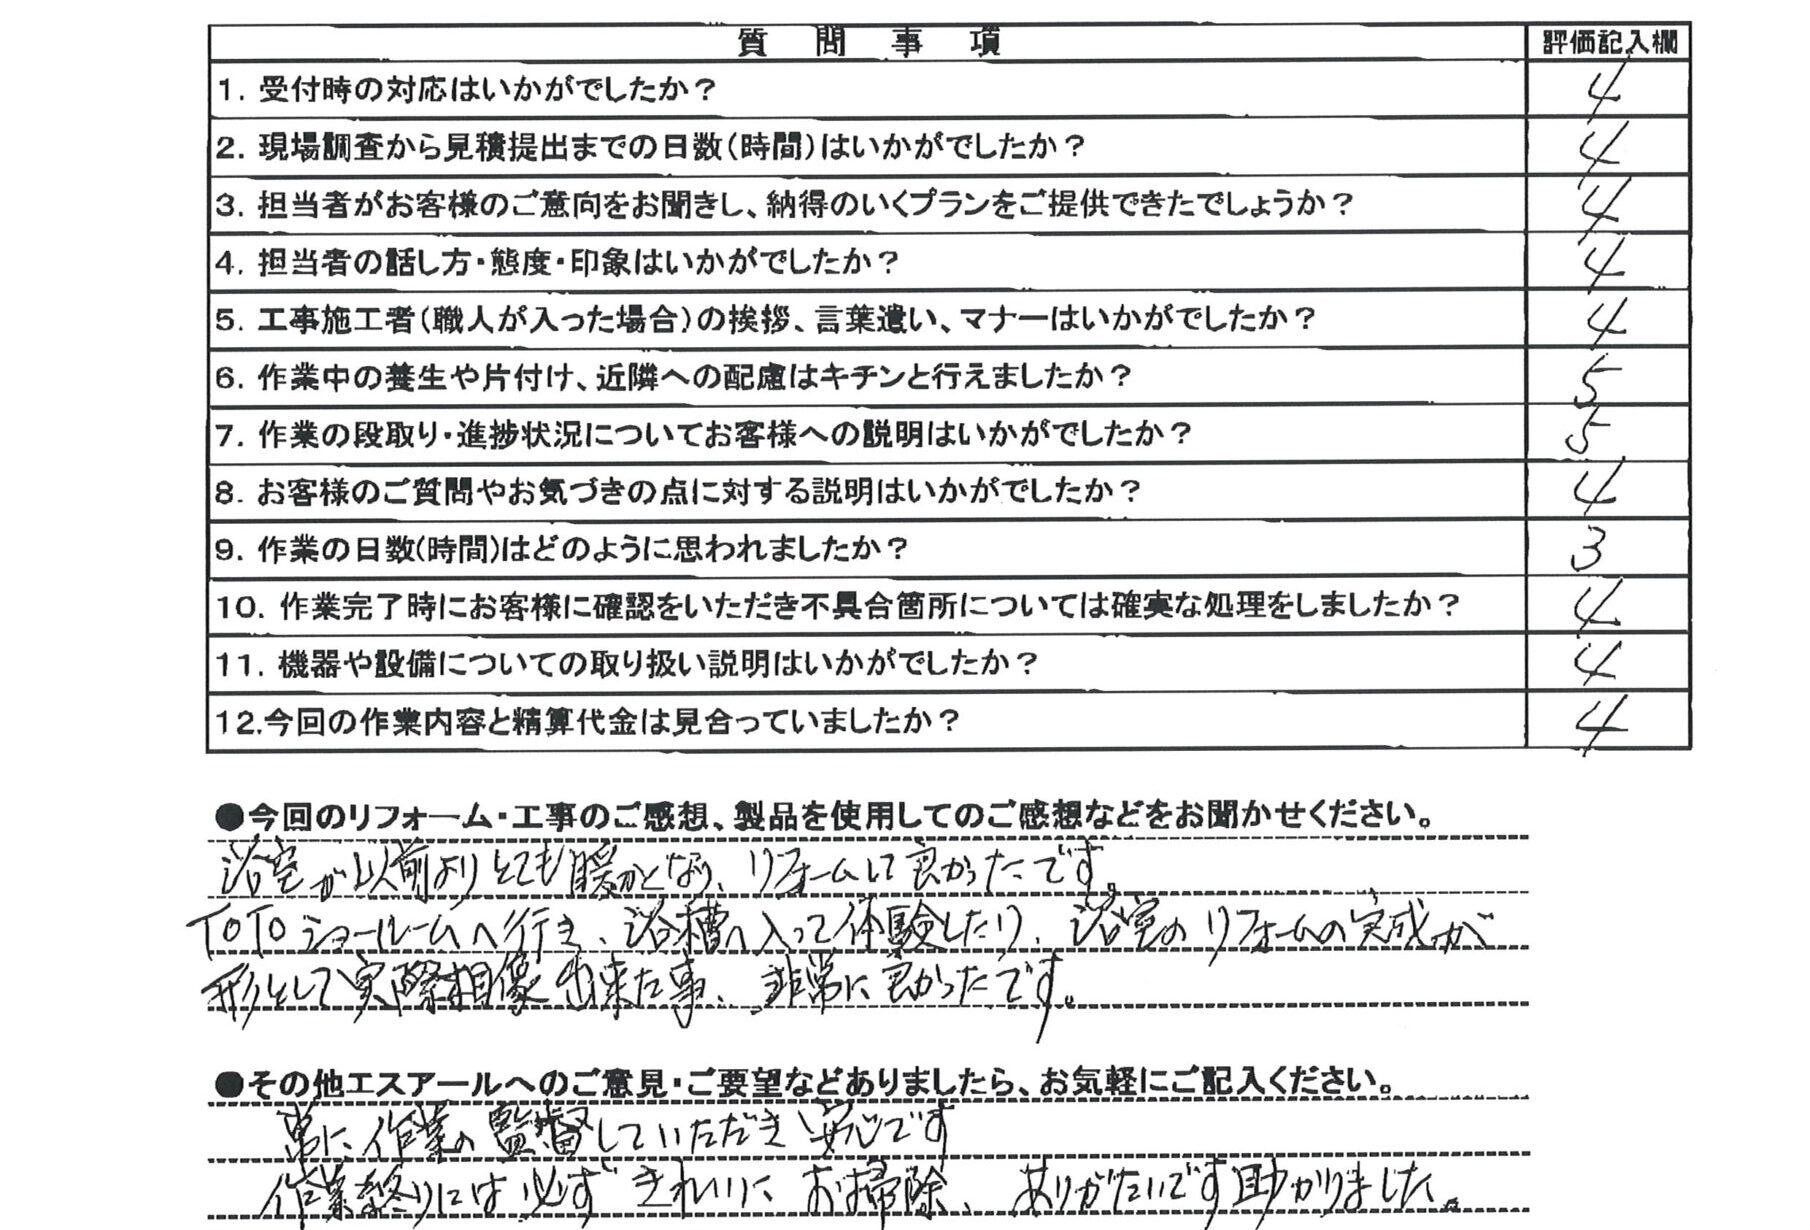 質問事項 評価記入欄
1. 受付時の対応はいかがでしたか？ 4
2. 現場調査から見積提出までの日数(時間)はいかがでしたか？ 4
3. 担当者がお客様のご意向をお聞きし、納得のいくプランをご提供できたでしょうか？ 4
4. 担当者の話し方・態度・印象はいかがでしたか？ 4
5. 工事施工者(職人が入った場合)の挨拶、言葉遣い、マナーはいかがでしたか？ 4
6. 作業中の養生や片付け、近隣への配慮はキチンと行えましたか？ 5
7. 作業の段取り・進捗状況についてお客様への説明はいかがでしたか？ 5
8. お客様のご質問やお気づきの点に対する説明はいかがでしたか？ 4
9. 作業の日数(時間)はどのように思われましたか？ 3
10. 作業完了時にお客様に確認をいただき不具合箇所については確実な処理をしましたか？ 4
11. 機器や設備についての取り扱い説明はいかがでしたか？ 4
12.今回の作業内容と精算代金は見合っていましたか？ 4
●今回のリフォーム・工事のご感想、製品を使用してのご感想などをお聞かせください。
浴室が以前よりとても暖かとなり、リフォームして良かったです。
TOTOショールームへ行き、浴槽へ入って体験したり、浴室のリフォームの完成が
形として実際想像出来た事、非常に良かったです。
●その他エスアールへのご意見・ご要望などありましたら、お気軽にご記入ください。
常に作業の監督していただき安心です
作業終りには必ずきれいにお掃除、ありがたいです助かりました。